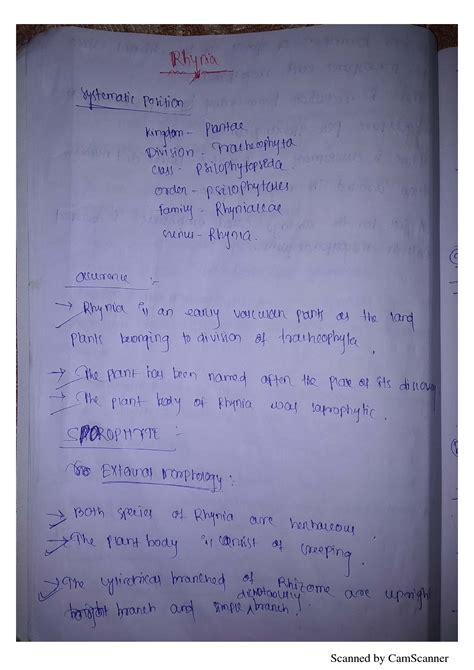 Rhynia
Systematic Position
Kingdom - Plantae
Division - Tracheophyta
Class - Psilophytopsida
Order - Psilophytales
Family - Rhyniaceae
Genus - Rhynia.
Occurence :-
→ Rhynia is an early vascular plants as the land
plants belonging to division of tracheophyta.
→ The plant has been named after the place of its discovery
→ The plant body of Rhynia was saprophytic.
SPOROPHYTE :-
External Morphology :-
→ Both species of Rhynia are herbaceous.
→ The plant body is consist of creeping.
→ The cylindrical branched of Rhizome are upright
dichotomously
branch and simple branch.
Scanned by CamScanner